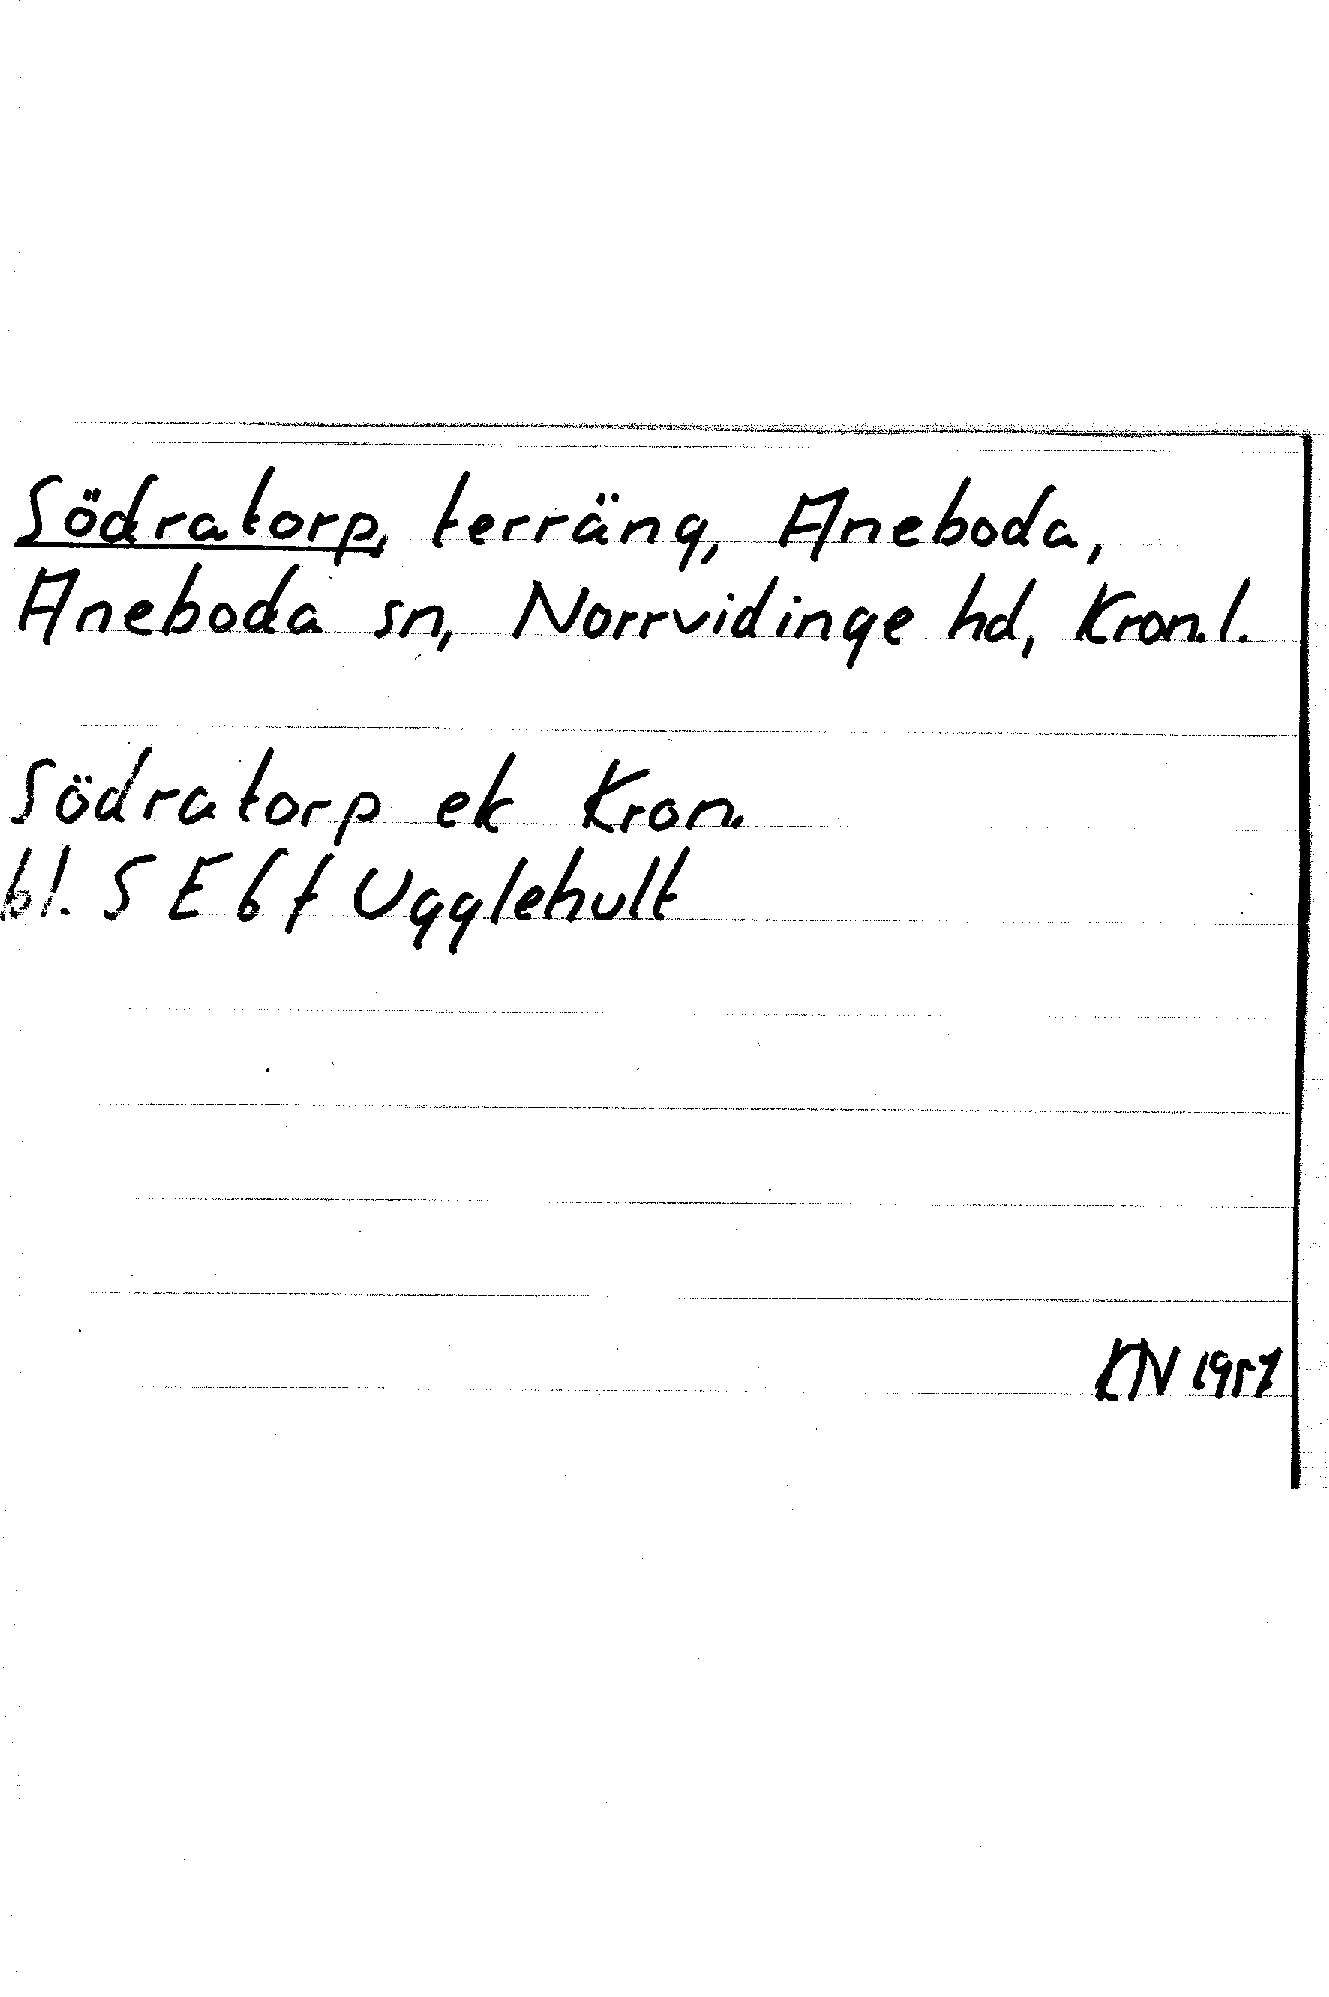 Södratorp, terräng, Aneboda,
Aneboda sn, Norrvidinge hd, Kron.l.
Södratorp ek Kron.
bl. 5 E 6 f Ugglehult
KN 1957